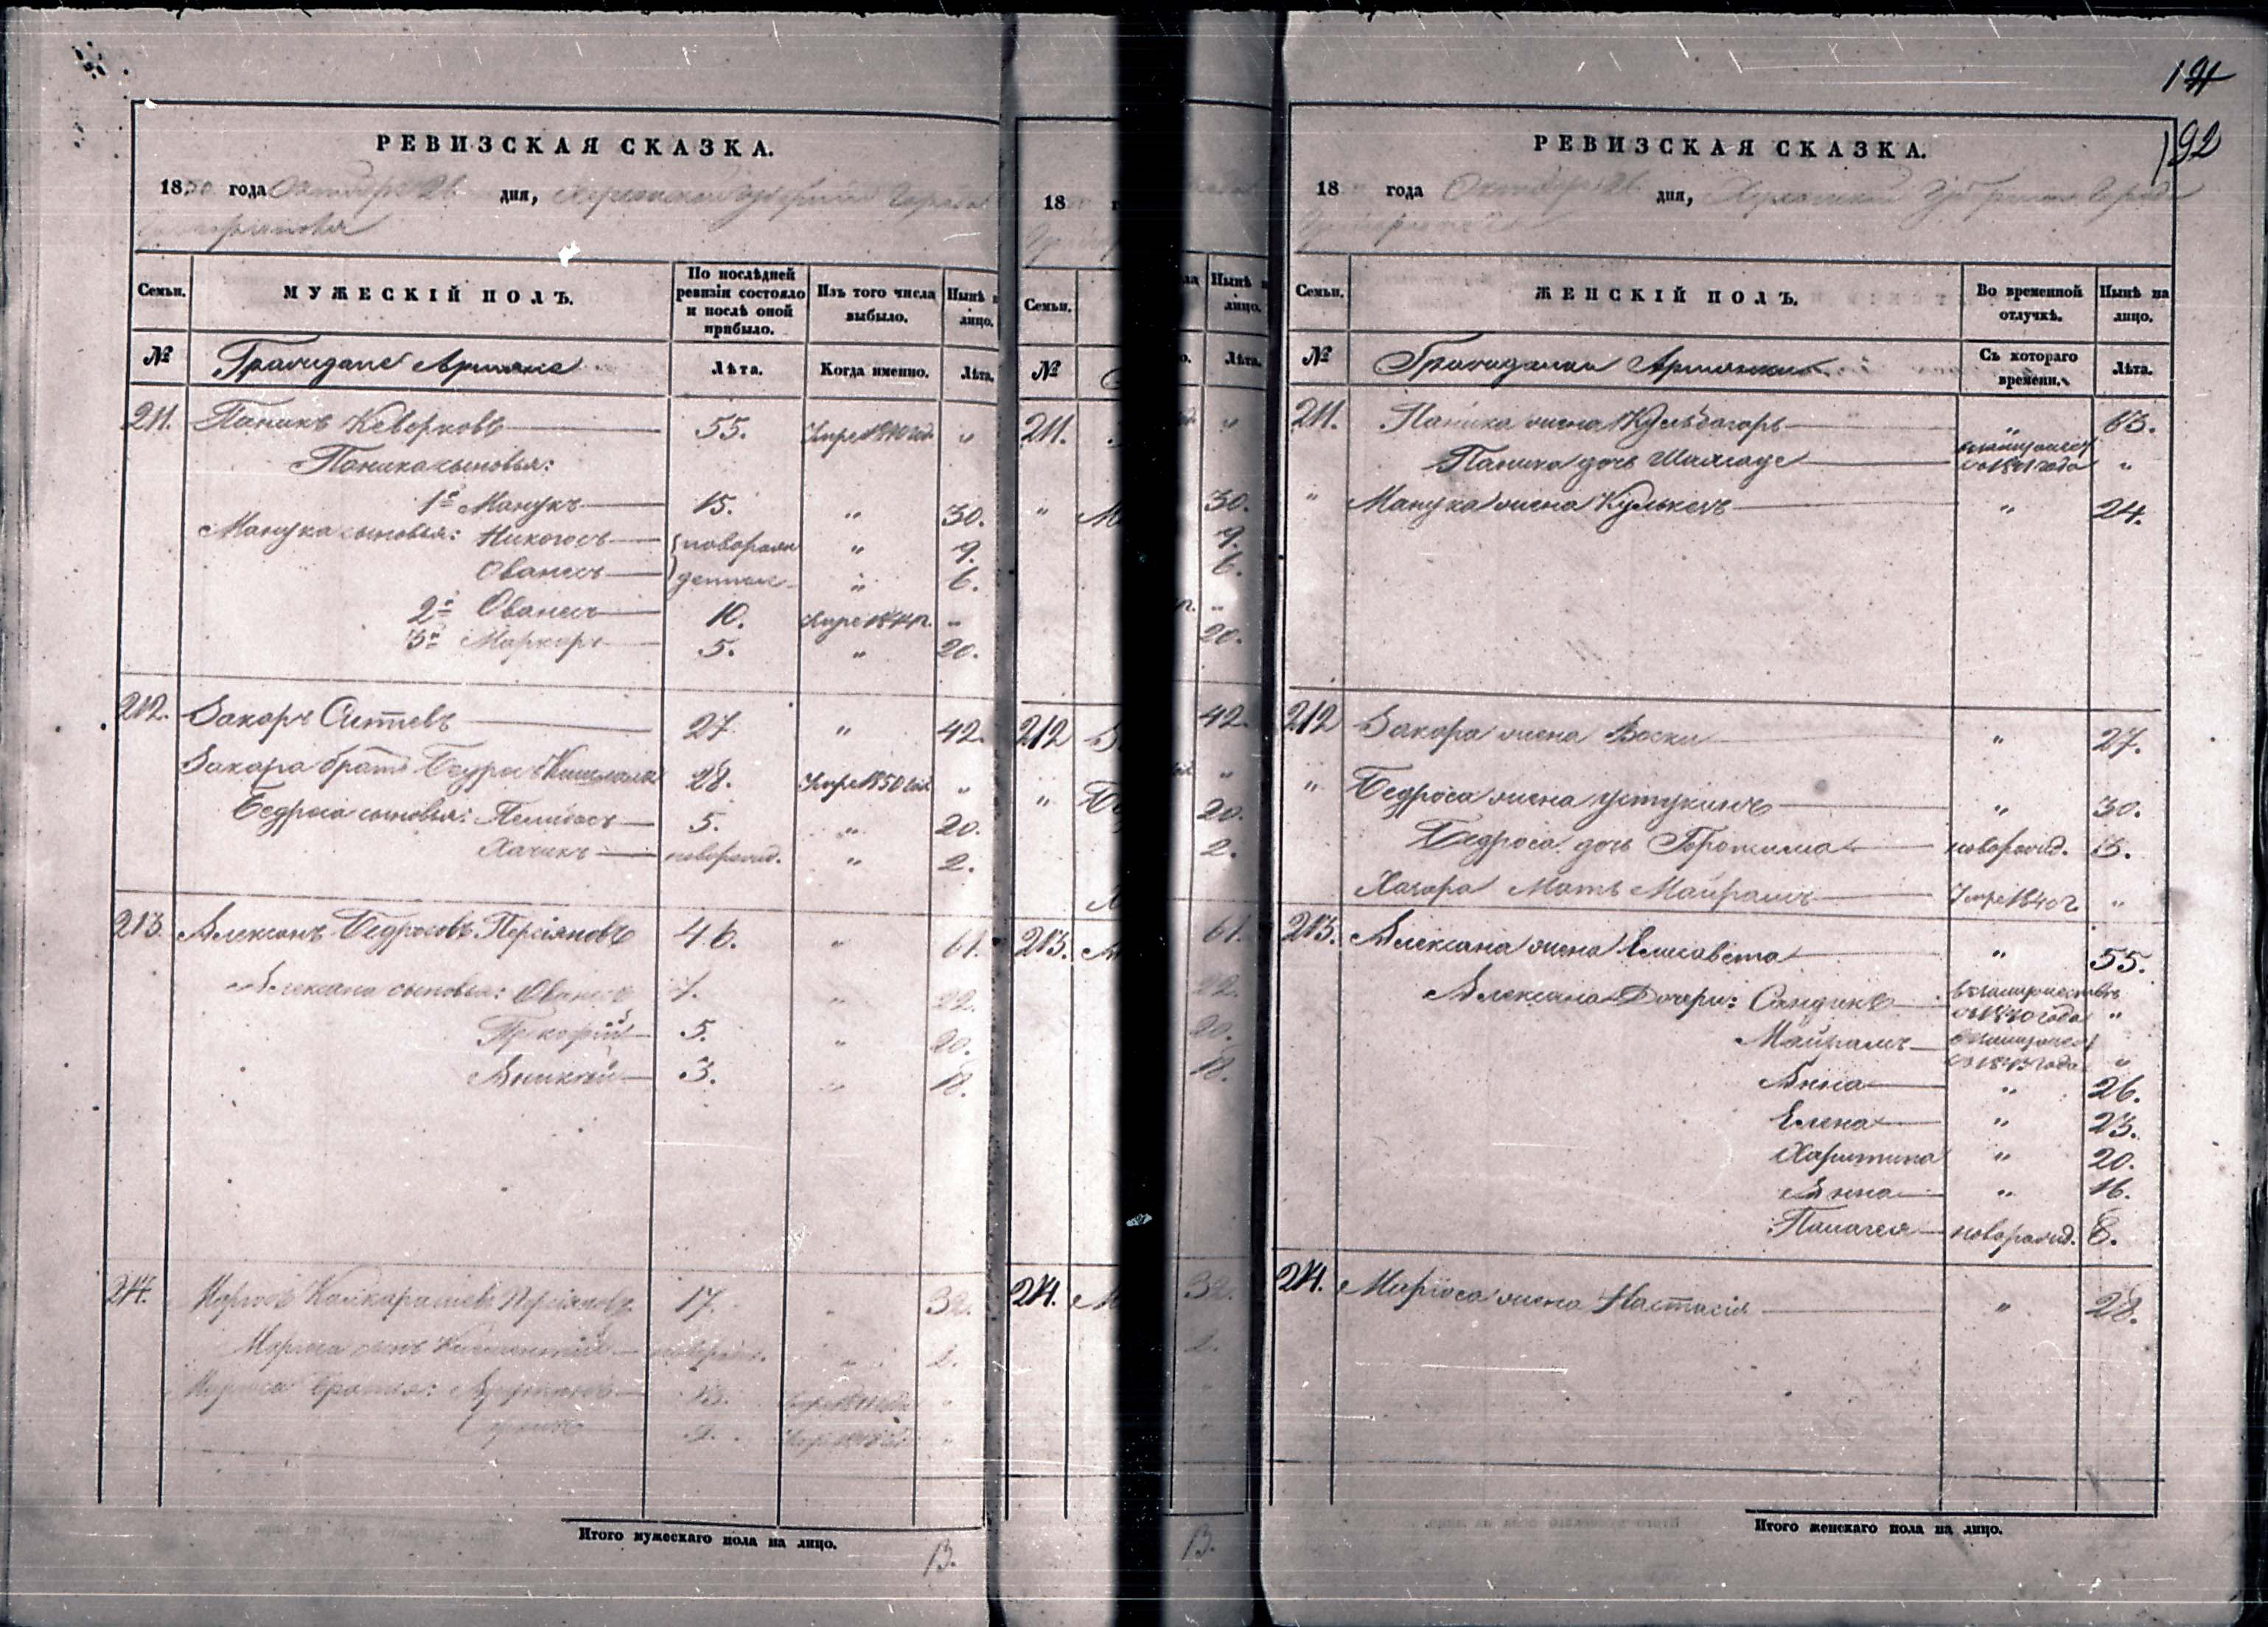 191
192
РЕВИЗСКАЯ СКАЗКА.
1850 года Октября 26 дня, Херсонской губернии Города
Григориополя
Семьи.
МУЖЕСКІЙ ПОЛЪ.
По послѣдней ревизіи состояло и послѣ оной прибыло.
Изъ того числа выбыло.
Нынѣ на лицо.
№ Граждане Армяне Лѣта. Когда именно. Лѣта.
211. Паникъ Кеверковъ 55. Умре 1840 год. "
Паника сыновья:
1й Манукъ 15. " 30.
Манука сыновья: Никогосъ новорож " 9.
Ованесъ денные " 6.
2й Ованесъ 10. Умре 1844 г. "
3й Маркаръ 5. " 20.
212. Закаръ Аситевъ 27 " 42.
Закара братъ Бедросъ 28. Умре 1850 год. "
Бедроса сыновья: 5. " 20.
Хачикъ новорожд. " 2.
213. Алексанъ Бедросовъ Персіяновъ 46. " 61.
Алексана сыновья: Ованесъ 7. " 22.
Прокофій 5. " 20.
Аникій 3. " 18.
214. Кайкарашевъ Персіяновъ 17. " 32.
сынъ новорожд. " 2.
братья: "
"
Итого мужескаго пола на лицо.
13.
18
Семьи.
№
211.
"
212
"
213.
214.
Нынѣ на лицо.
Лѣта.
"
30.
9.
6.
"
20.
42.
"
20.
2.
61.
22.
20.
18.
32.
2.
"
"
13.
РЕВИЗСКАЯ СКАЗКА.
18 года Октября 26 дня, Херсонской Губерніи Города
Семьи.
ЖЕНСКІЙ ПОЛЪ.
Во временной отлучкѣ.
Нынѣ на лицо.
№ Гражданки Армянки Съ котораго времени. Лѣта.
211. Паника жена Кульбагаръ " 63.
Паника дочь Шахзаде въ замужест съ 1841 года "
" Манука жена Кулькезъ " 24.
212 Закара жена Воски " 27.
" Бедроса жена Устукинъ " 30.
Бедроса дочь новорожд. 3.
Хачара Мать Майрамъ Умре 1840 г. "
213. Алексана жена Елисавета " 55.
Алексана Дочери: въ замужествѣ съ 1840 года "
Майрамъ въ замужест съ 1843 года "
Анна " 26.
Елена " 23.
Харитина " 20.
Анна " 16.
Палагея новорожд. 8.
214. Маркоса жена Настасія " 28.
Итого женскаго пола на лицо.